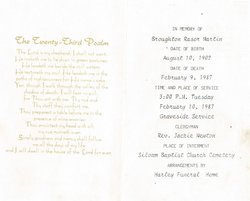 The Twenty-Third Psalm
The Lord is my shepherd, I shall not want.
He maketh me to lie down in green pastures
He leadeth me beside the still waters.
He restoreth my soul. He leadeth me in the
for His name's sake.
Yea, though I walk through the valley of the
shadow of death, I will fear no evil
For Thou art with me. Thy rod and
Thy staff they comfort me.
Thou preparest a table before me in the
presence of mine enemies.
Thou anointest my head with oil,
my cup runneth over.
Surely goodness and mercy shall follow
me all the days of my life
and I will dwell in the house of the Lord for ever
IN MEMORY OF
Broughton Rasor Martin
DATE OF BIRTH
August 10, 1902
DATE OF DEATH
February 9, 1987
TIME AND PLACE OF SERVICE
3:00 P.M. Tuesday
February 10, 1987
Graveside Service
CLERGYMAN
Rev. Jackie Newton
PLACE OF INTERMENT
Siloam Baptist Church Cemetery
ARRANGEMENTS BY
Harley Funeral Home